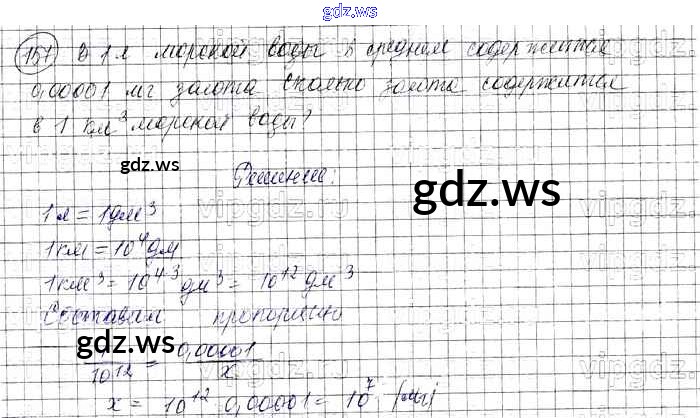 gdz.ws
157 В 1 л морской воды в среднем содержится
0,00001 мг золота сколько золота содержится
в 1 км³ морской воды?
gdz.ws
Решение:
gdz.ws
vipgdz.ru
1л = 1дм³
1км = 10⁴дм
1км³ = 10⁴·³ дм³ = 10¹² дм³
Составим пропорцию
gdz.ws
1/10¹² = 0,00001/x
x = 10¹² · 0,00001 = 10⁷ (мг)
gdz.ws
gdz.ws